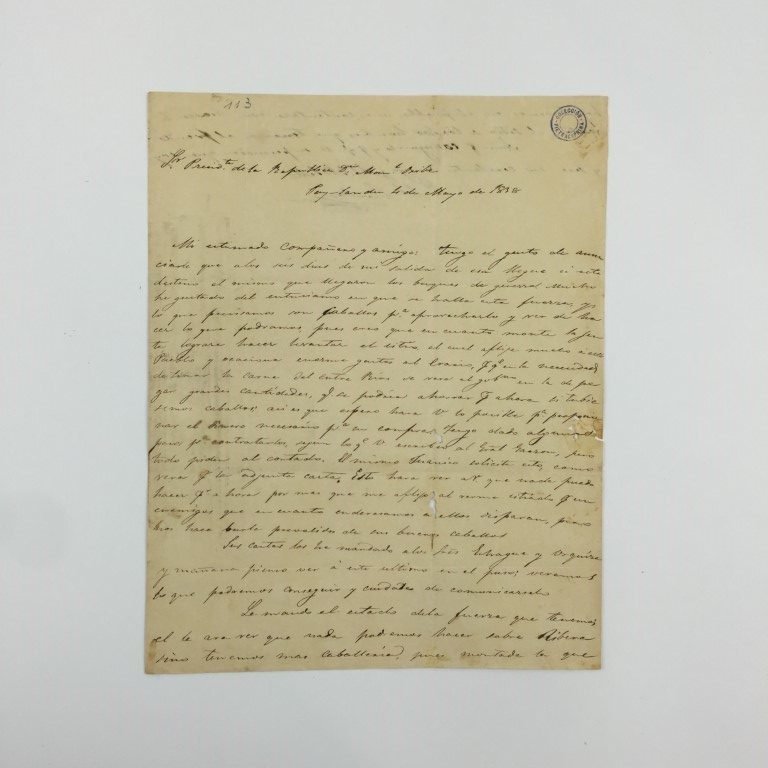 113
COLECCIÓN
Sr. Presidte. de la Republica Dn. Manl. Oribe
Paysandu 4 de Mayo de 1838
Mi estimado Compañero y amigo: tengo el gusto de anun
ciarle que alos seis dias de mi salida de esa llegué á este
destino el mismo que llegaron los buques de guerra. Mucho
he gustado del entusiasmo en que se halla esta fuerza, y
lo que precisamos son Caballos pa. aprovecharlo y ver de ha
cer lo que podramos pues creo que en cuanto monte la jen
te lograre hacer levantar el sitio, el cual aflije mucho á este
Pueblo y ocaciona enorme gastos al Erario, pr. qe. en la necesidad
de tomar la carne del entre Rios se vera el gobno. en la de pa
gar grandes cantidades, qe. se podria ahorrar pr. ahora si tubie
semos caballos: asi es que espero hara V lo posible pr. proporcio
nar el dinero necesario pa. su compra. Tengo dado algunos
pasos pa. contratarlos, segun lo qe. V. escribio al Gral
todo piden al contado. El mismo solicita esto, como
vera pr. la adjunta carta. Esto hara ver a V. que nada puedo
hacer pr. ahora por mas que me aflije al verme sitiado pr. un
enemigos que en cuanto enderesamos a ellos disparan, pero
nos hace burla prevalidos de sus buenos caballos
Las cartas las he mandado alos Sres Echague y Urquiza
y mañana pienso ver á este ultimo en el paso; veremos
lo que podremos conseguir y cuidaré de comunicarselo
Le mando el estado dela fuerza que tenemos
el le ara ver que nada podemos hacer sobre Ribera
sino tenemos mas caballeria, pues montada la que